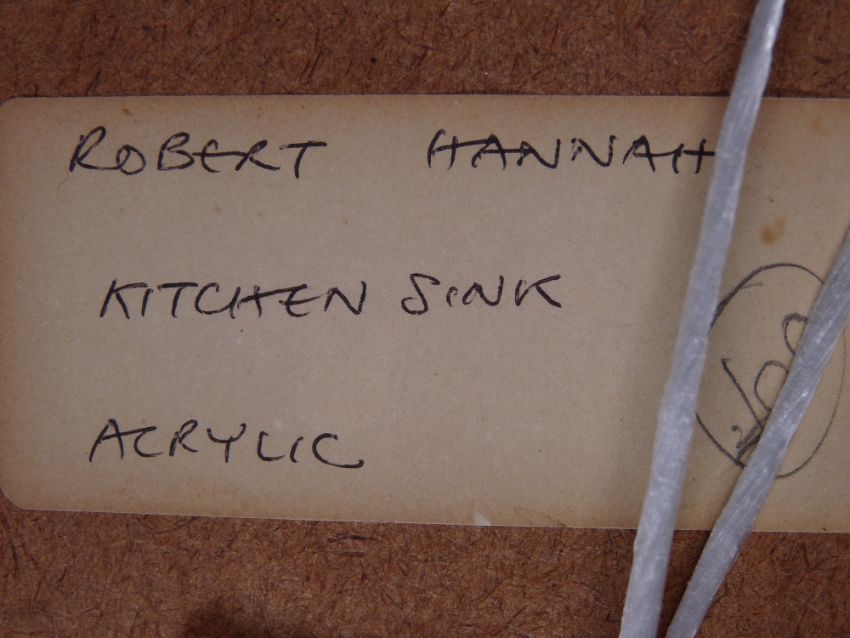 ROBERT HANNAH
KITCHEN SINK
ACRYLIC